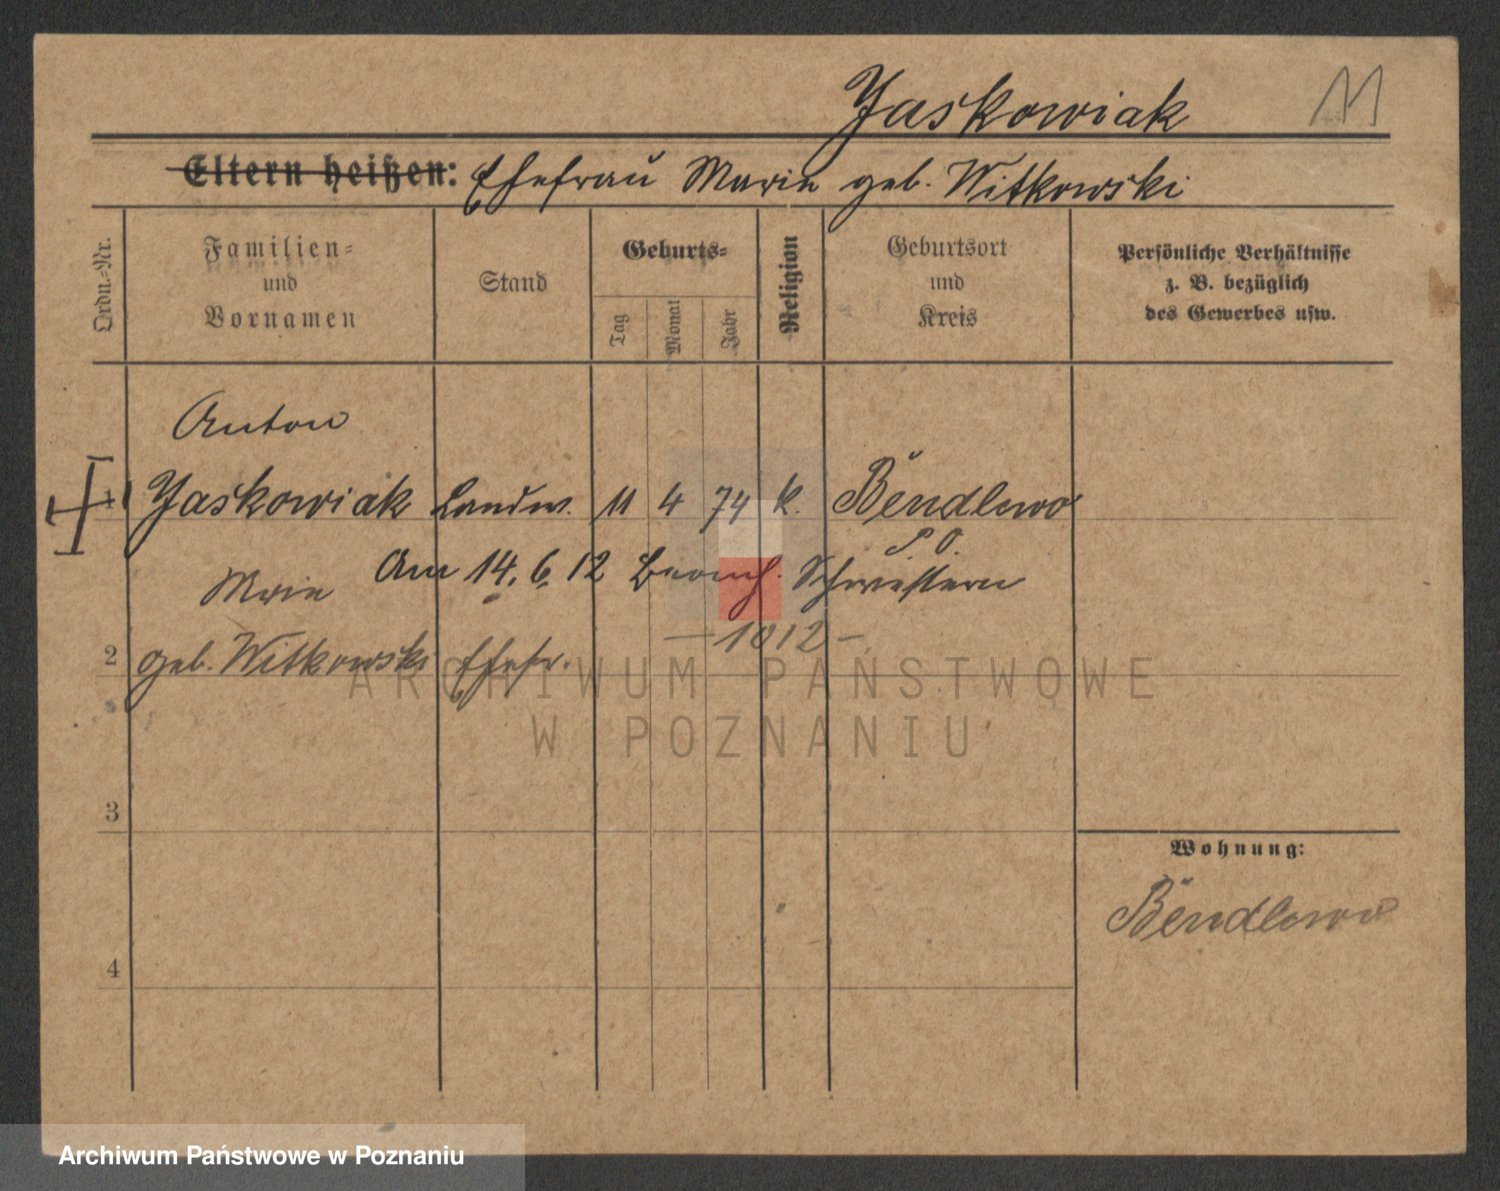 Jaskowiak 11
Eltern heißen: Ehefrau Marie geb. Witkowski
Ordn.-Nr.
Familien-
und
Vornamen
Stand
Geburts-
Tag
Monat
Jahr
Religion
Geburtsort
und
Kreis
Persönliche Verhältnisse
z. B. bezüglich
des Gewerbes usw.
Anton
1 Jaskowiak Landw. 11 4 74 k. Bendlewo
P. O.
Am 14. 6. 12 Barmh. Schwestern
Mrie
— 1012 —
2 geb. Witkowski Ehefr.
3
Wohnung:
Bendlewo
4
ARCHIWUM PAŃSTWOWE
W POZNANIU
Archiwum Państwowe w Poznaniu